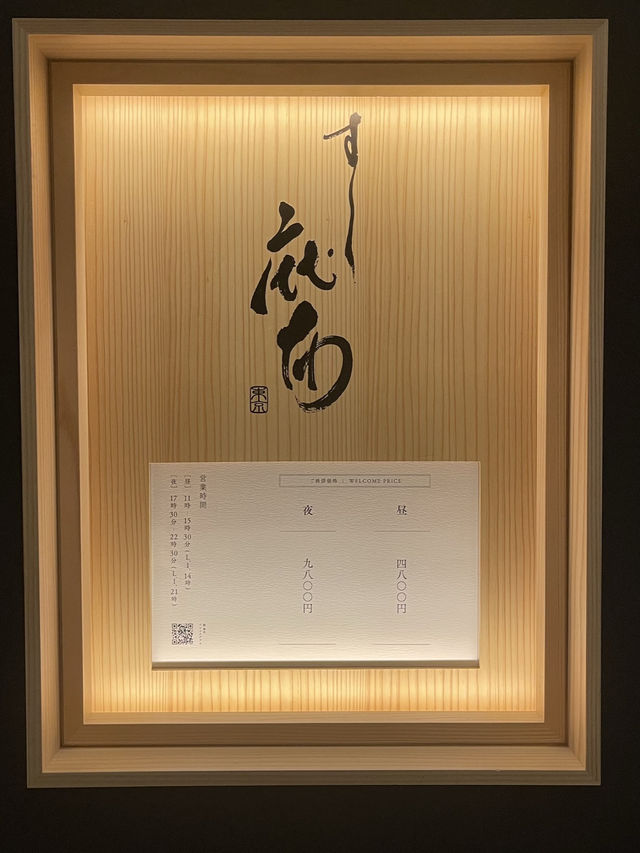 すし
麻布
東京
ご挨拶価格 | WELCOME PRICE
昼
四八〇〇円
夜
九八〇〇円
営業時間
［昼］11時 - 15時30分（L.I. 14時）
［夜］17時30分 - 22時30分（L.I. 21時）